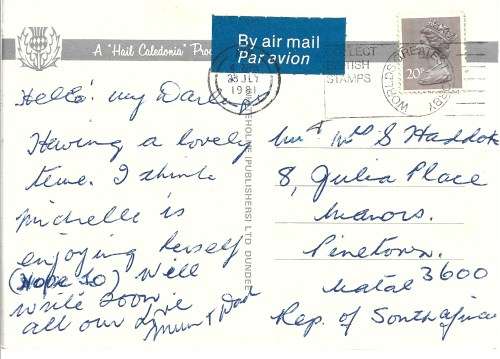 A "Hail Caledonia" Pro
By air mail
Par avion
JLY
1981
COLLECT
BRITISH
STAMPS
WORLD'S GREATEST HOBBY
20P
Hello! my Darlings
Having a lovely
time. I think
Michelle is
enjoying herself
(Hope so) Will
write soon
all our love
Mum & Dad
(PUBLISHERS) LTD. DUNDEE
Mr & Mrs S Haddok
8, Julia Place
Manors.
Pinetown.
3600
Natal
Rep. of South Africa